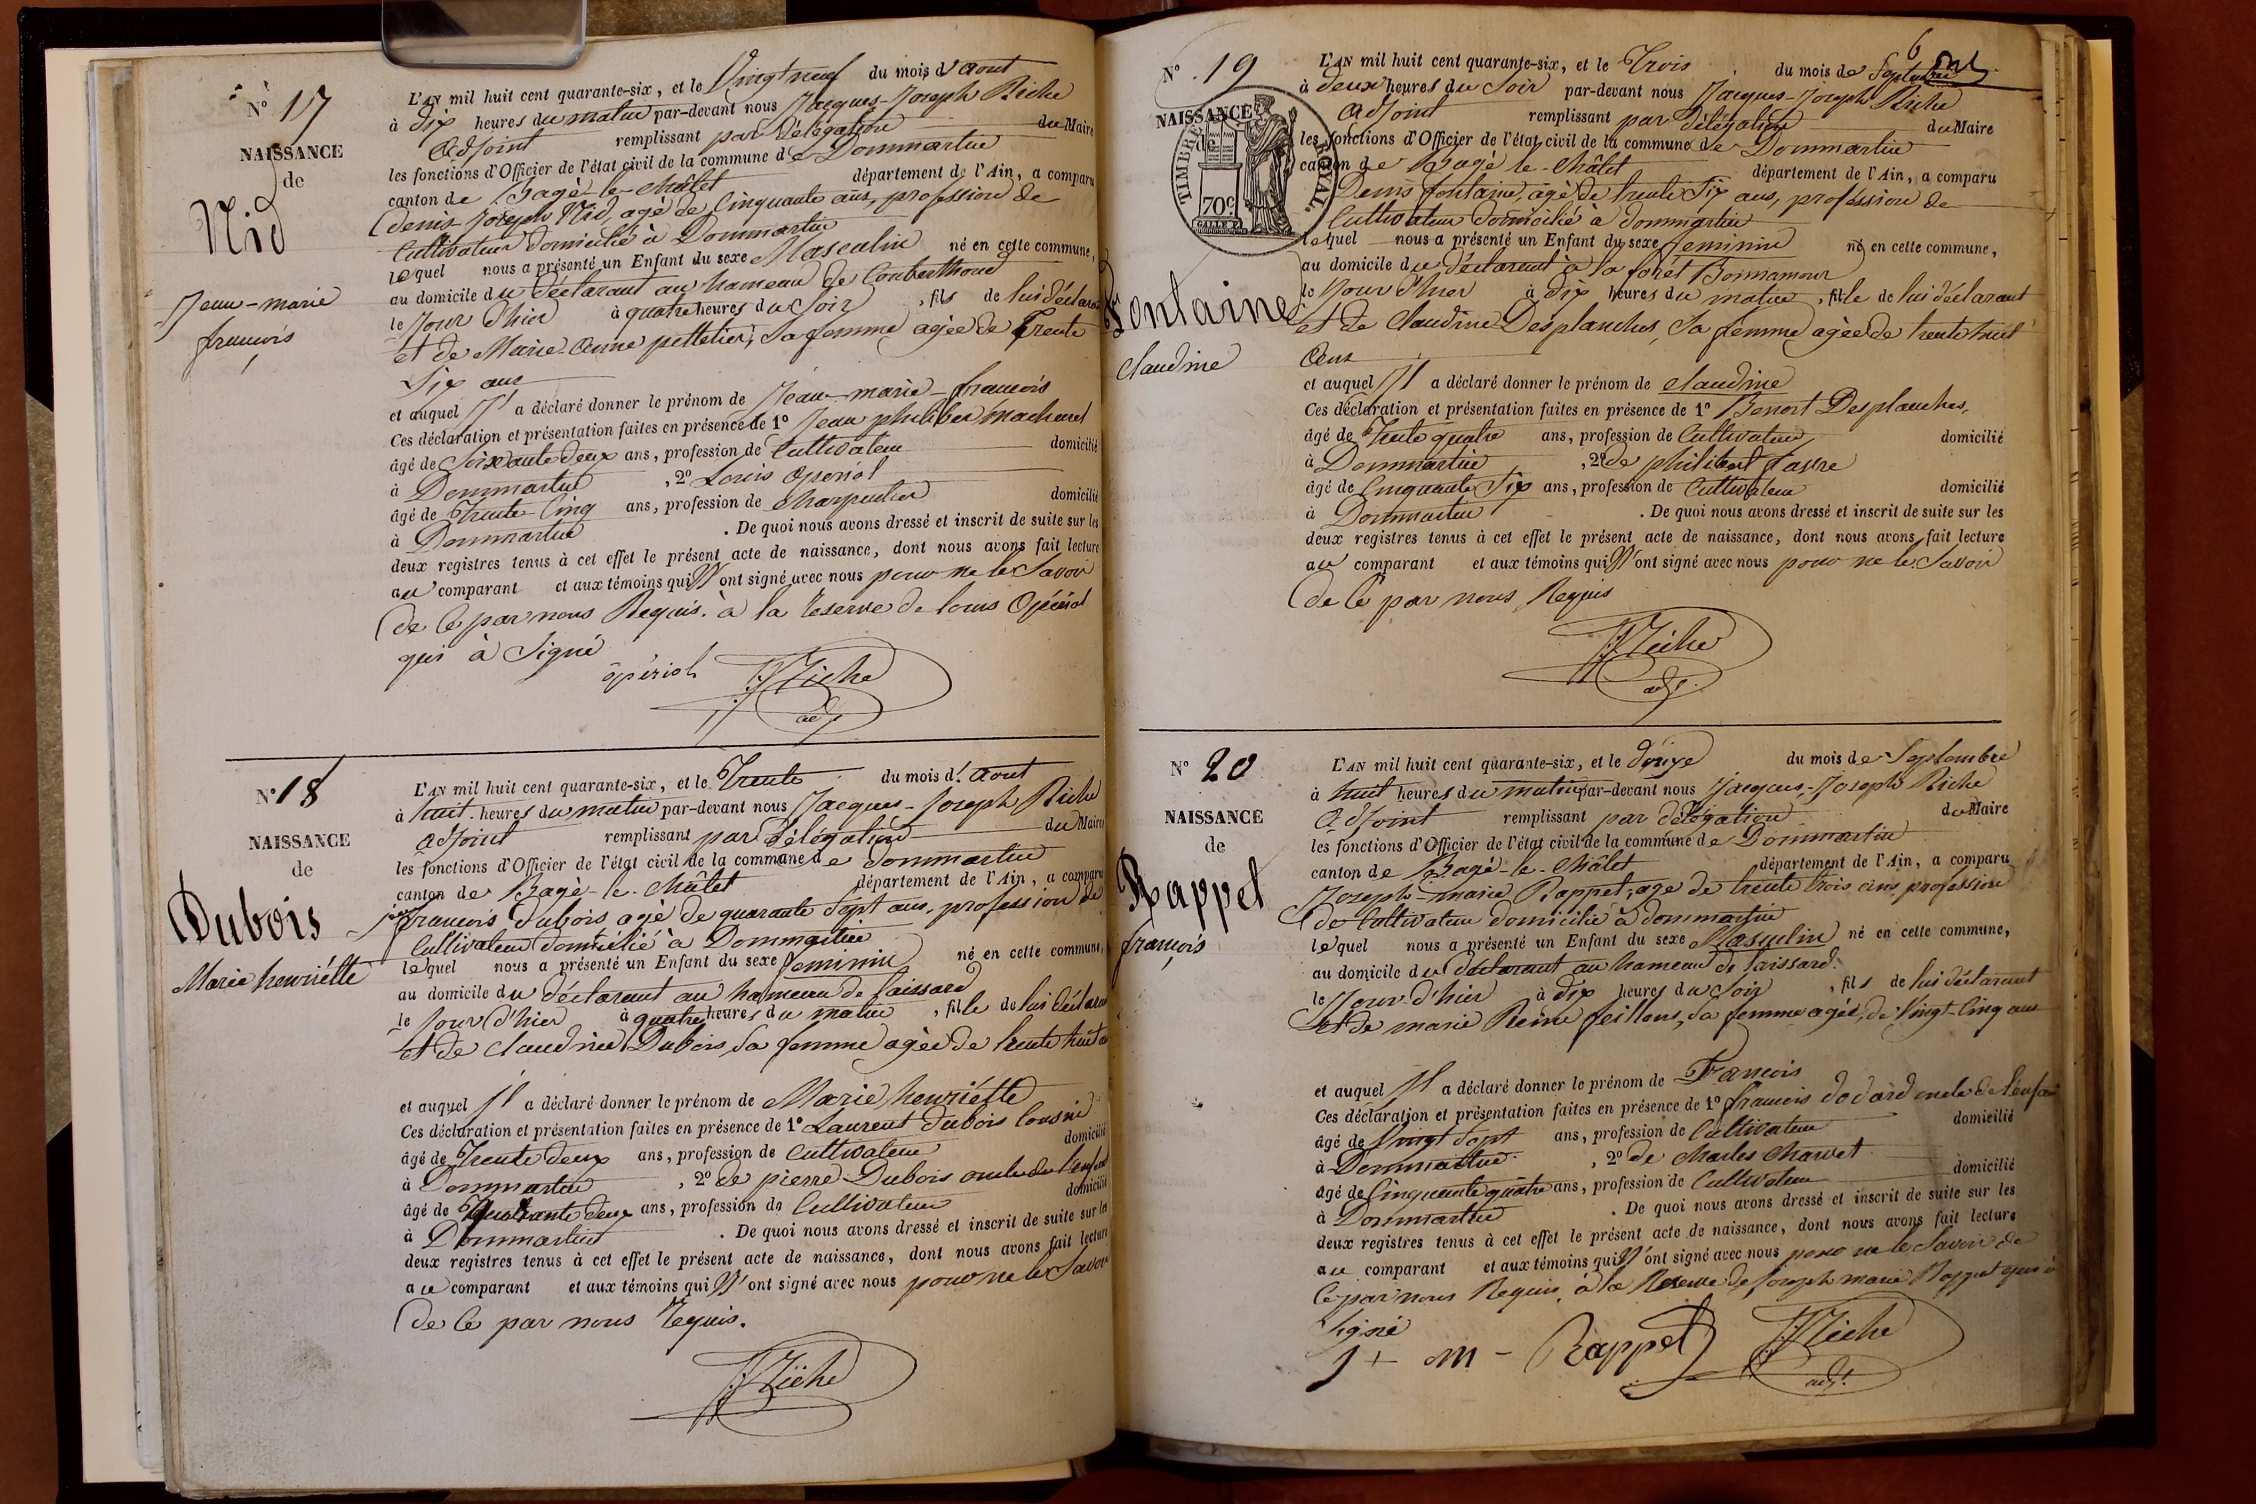 N° 17
NAISSANCE
de
Nid
Jean-marie
françois
L'AN mil huit cent quarante-six, et le Vingt neuf du mois d'aout
à dix heures du matin par-devant nous Jacques-Joseph Riche
adjoint remplissant par délégation du Maire
les fonctions d'Officier de l'état civil de la commune de Dommartin
canton de Bagé-le-Châtel département de l'Ain, a comparu
denis Joseph Nid, agé de Cinquante ans, profession de
Cultivateur domicilié à Dommartin
lequel nous a présenté un Enfant du sexe Masculin né en cette commune,
au domicile du déclarant au hameau de Couberthoud
le Jour d'hier à quatre heures du Soir, fils de lui déclarant
et de Marie Anne pelletier, Sa femme agée de Trente
Six ans
et auquel Il a déclaré donner le prénom de Jean-marie-françois
Ces déclaration et présentation faites en présence de 1° Jean philiber machard
âgé de Soixante deux ans, profession de Cultivateur domicilié
à Dommartin, 2° Louis Opériol
âgé de Trente Cinq ans, profession de Charpentier domicilié
à Dommartin. De quoi nous avons dressé et inscrit de suite sur les
deux registres tenus à cet effet le présent acte de naissance, dont nous avons fait lecture
au comparant et aux témoins qui N'ont signé avec nous pour ne le Savoir
de Ce par nous Requis. à la reserve de louis Opériol
qui à Signé
opériol JJ Riche
adj
N° 18
NAISSANCE
de
Dubois
Marie henriétte
L'AN mil huit cent quarante-six, et le Trente du mois d'aout
à huit heures du matin par-devant nous Jacques-Joseph Riche
adjoint remplissant par délégation du Maire
les fonctions d'Officier de l'état civil de la commune de dommartin
canton de Bagé-le-Châtel département de l'Ain, a comparu
jean françois Dubois agé de quarante Sept ans, profession de
Cultivateur domicilié à Dommartin
lequel nous a présenté un Enfant du sexe feminin né en cette commune,
au domicile du déclarant au hameau de Saissard
le Jour d'hier à quatre heures du matin, fille de lui déclarant
et de Claudine Dubois, Sa femme agée de trente huit
et auquel Il a déclaré donner le prénom de Marie henriétte
Ces déclaration et présentation faites en présence de 1° Laurent dubois Cousin
âgé de Trente deux ans, profession de Cultivateur domicilié
à Dommartin, 2° de pierre Dubois oncle de l'enfant
âgé de Quarante deux ans, profession de Cultivateur domicilié
à Dommartin. De quoi nous avons dressé et inscrit de suite sur les
deux registres tenus à cet effet le présent acte de naissance, dont nous avons fait lecture
au comparant et aux témoins qui N'ont signé avec nous pour ne le Savoir
de Ce par nous Requis.
JJ Riche
N° 19
NAISSANCE
de
TIMBRE ROYAL.
70 c.
Fontaine
Claudine
6
L'AN mil huit cent quarante-six, et le Trois du mois de Septembre
à deux heures du Soir par-devant nous Jacques-Joseph Riche
adjoint remplissant par délégation du Maire
les fonctions d'Officier de l'état civil de la commune de Dommartin
canton de Bagé-le-Châtel département de l'Ain, a comparu
Denis fontaine, agé de trente Six ans, profession de
Cultivateur domicilié a dommartin
lequel nous a présenté un Enfant du sexe feminin né en cette commune,
au domicile du déclarant à la forêt Bonnamour
le Jour d'hier à dix heures du matin, fille de lui déclarant
et de Claudine Desplanches, Sa femme agée de trente huit
Ans
et auquel Il a déclaré donner le prénom de Claudine
Ces déclaration et présentation faites en présence de 1° Benoit Desplanches,
âgé de Trente quatre ans, profession de Cultivateur domicilié
à Dommartin, 2° de philibert favre
âgé de Cinquante Six ans, profession de Cultivateur domicilié
à Dommartin. De quoi nous avons dressé et inscrit de suite sur les
deux registres tenus à cet effet le présent acte de naissance, dont nous avons fait lecture
au comparant et aux témoins qui N'ont signé avec nous pour ne le Savoir
de Ce par nous Requis
JJ Riche
adj.
N° 20
NAISSANCE
de
Rappel
françois
L'AN mil huit cent quarante-six, et le douze du mois de Septembre
à huit heures du matin par-devant nous Jacques-Joseph Riche
adjoint remplissant par délégation du Maire
les fonctions d'Officier de l'état civil de la commune de Dommartin
canton de Bagé-le-Châtel département de l'Ain, a comparu
Joseph-marie Rappet, age de trente trois ans profession
de Cultivateur domicilié à dommartin
lequel nous a présenté un Enfant du sexe Masculin né en cette commune,
au domicile du déclarant au hameau de Saissard.
le Jour d'hier à dix heures du Soir, fils de lui déclarant
et de marie Reine feillens, Sa femme agée, de Vingt-Cinq ans
et auquel Il a déclaré donner le prénom de François
Ces déclaration et présentation faites en présence de 1° françois dodard oncle de l'enfant
âgé de Vingt Sept ans, profession de Cultivateur domicilié
à Dommartin, 2° de Charles Charvet
âgé de Cinquante quatre ans, profession de Cultivateur domicilié
à Dommartin. De quoi nous avons dressé et inscrit de suite sur les
deux registres tenus à cet effet le présent acte de naissance, dont nous avons fait lecture
au comparant et aux témoins qui N'ont signé avec nous pour ne le Savoir de
Ce par nous Requis, à la Reserve de Joseph marie Rappet qui à
Signé
J + m - Rappet JJ Riche
adjt